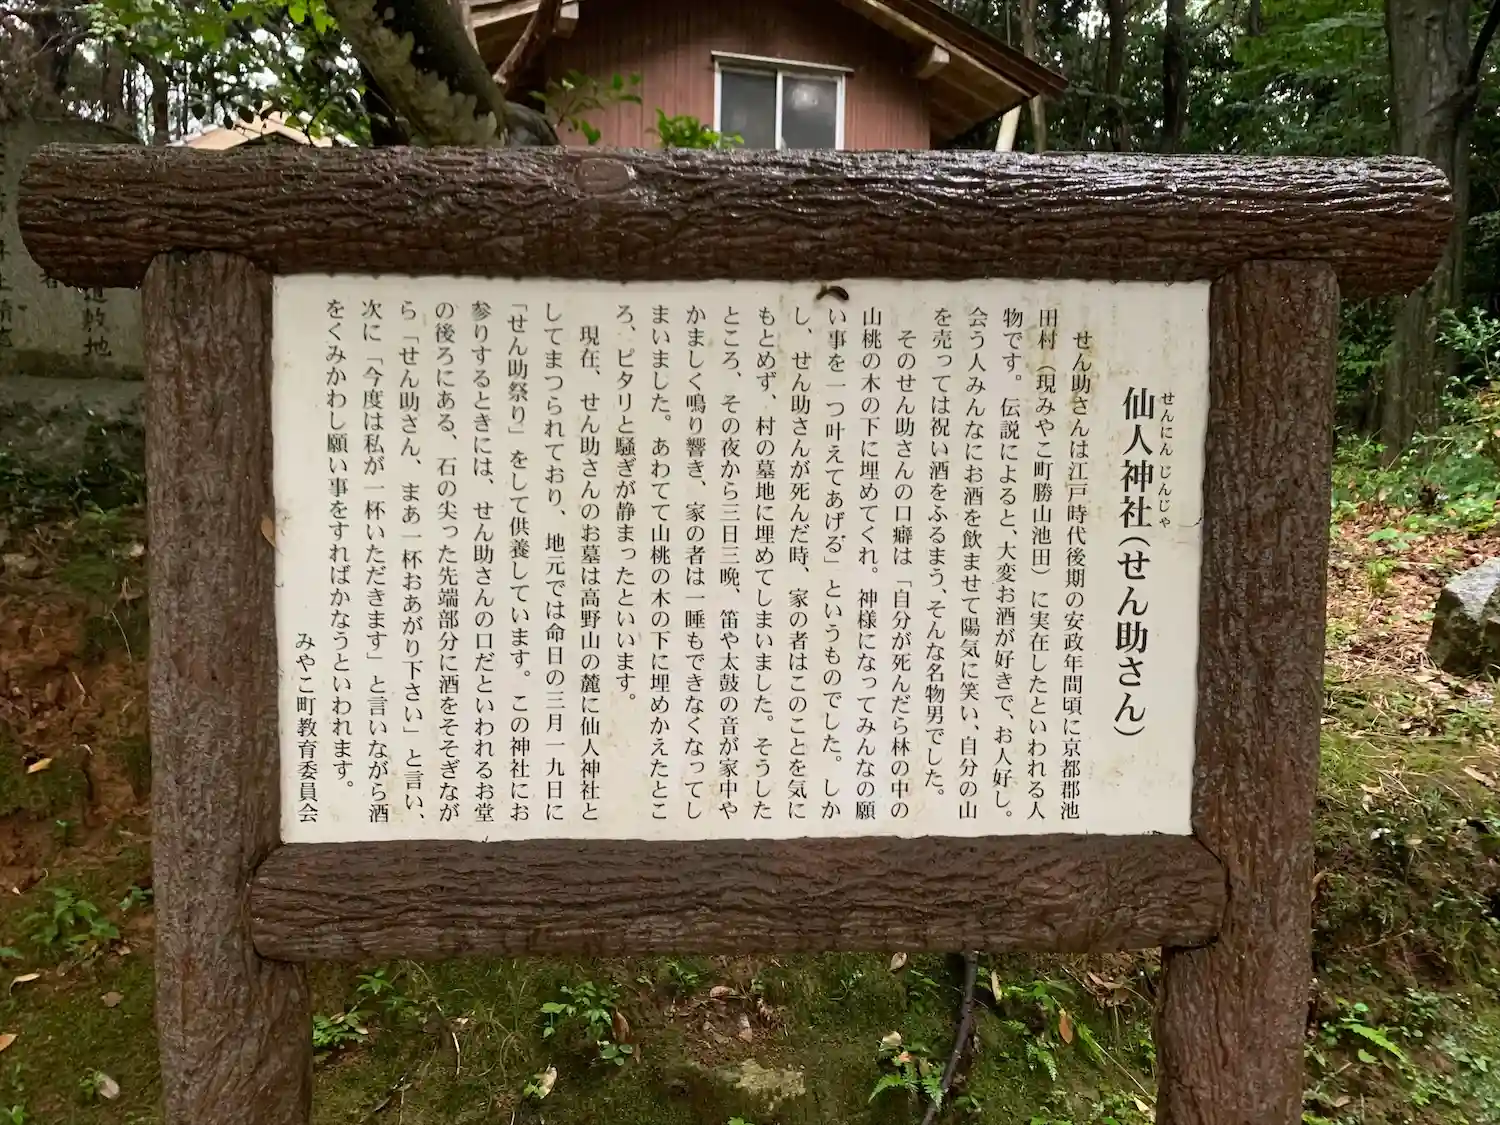 仙人神社（せん助さん）
せんにん じんじゃ
せん助さんは江戸時代後期の安政年間頃に京都郡池
田村（現みやこ町勝山池田）に実在したといわれる人
物です。伝説によると、大変お酒が好きで、お人好し。
会う人みんなにお酒を飲ませて陽気に笑い、自分の山
を売っては祝い酒をふるまう、そんな名物男でした。
そのせん助さんの口癖は「自分が死んだら林の中の
山桃の木の下に埋めてくれ。神様になってみんなの願
い事を一つ叶えてあげる」というものでした。しか
し、せん助さんが死んだ時、家の者はこのことを気に
もとめず、村の墓地に埋めてしまいました。そうした
ところ、その夜から三日三晩、笛や太鼓の音が家中や
かましく鳴り響き、家の者は一睡もできなくなってし
まいました。あわてて山桃の木の下に埋めかえたとこ
ろ、ピタリと騒ぎが静まったといいます。
現在、せん助さんのお墓は高野山の麓に仙人神社と
してまつられており、地元では命日の三月一九日に
「せん助祭り」をして供養しています。この神社にお
参りするときには、せん助さんの口だといわれるお堂
の後ろにある、石の尖った先端部分に酒をそそぎなが
ら「せん助さん、まあ一杯おあがり下さい」と言い、
次に「今度は私が一杯いただきます」と言いながら酒
をくみかわし願い事をすればかなうといわれます。
みやこ町教育委員会
敷地